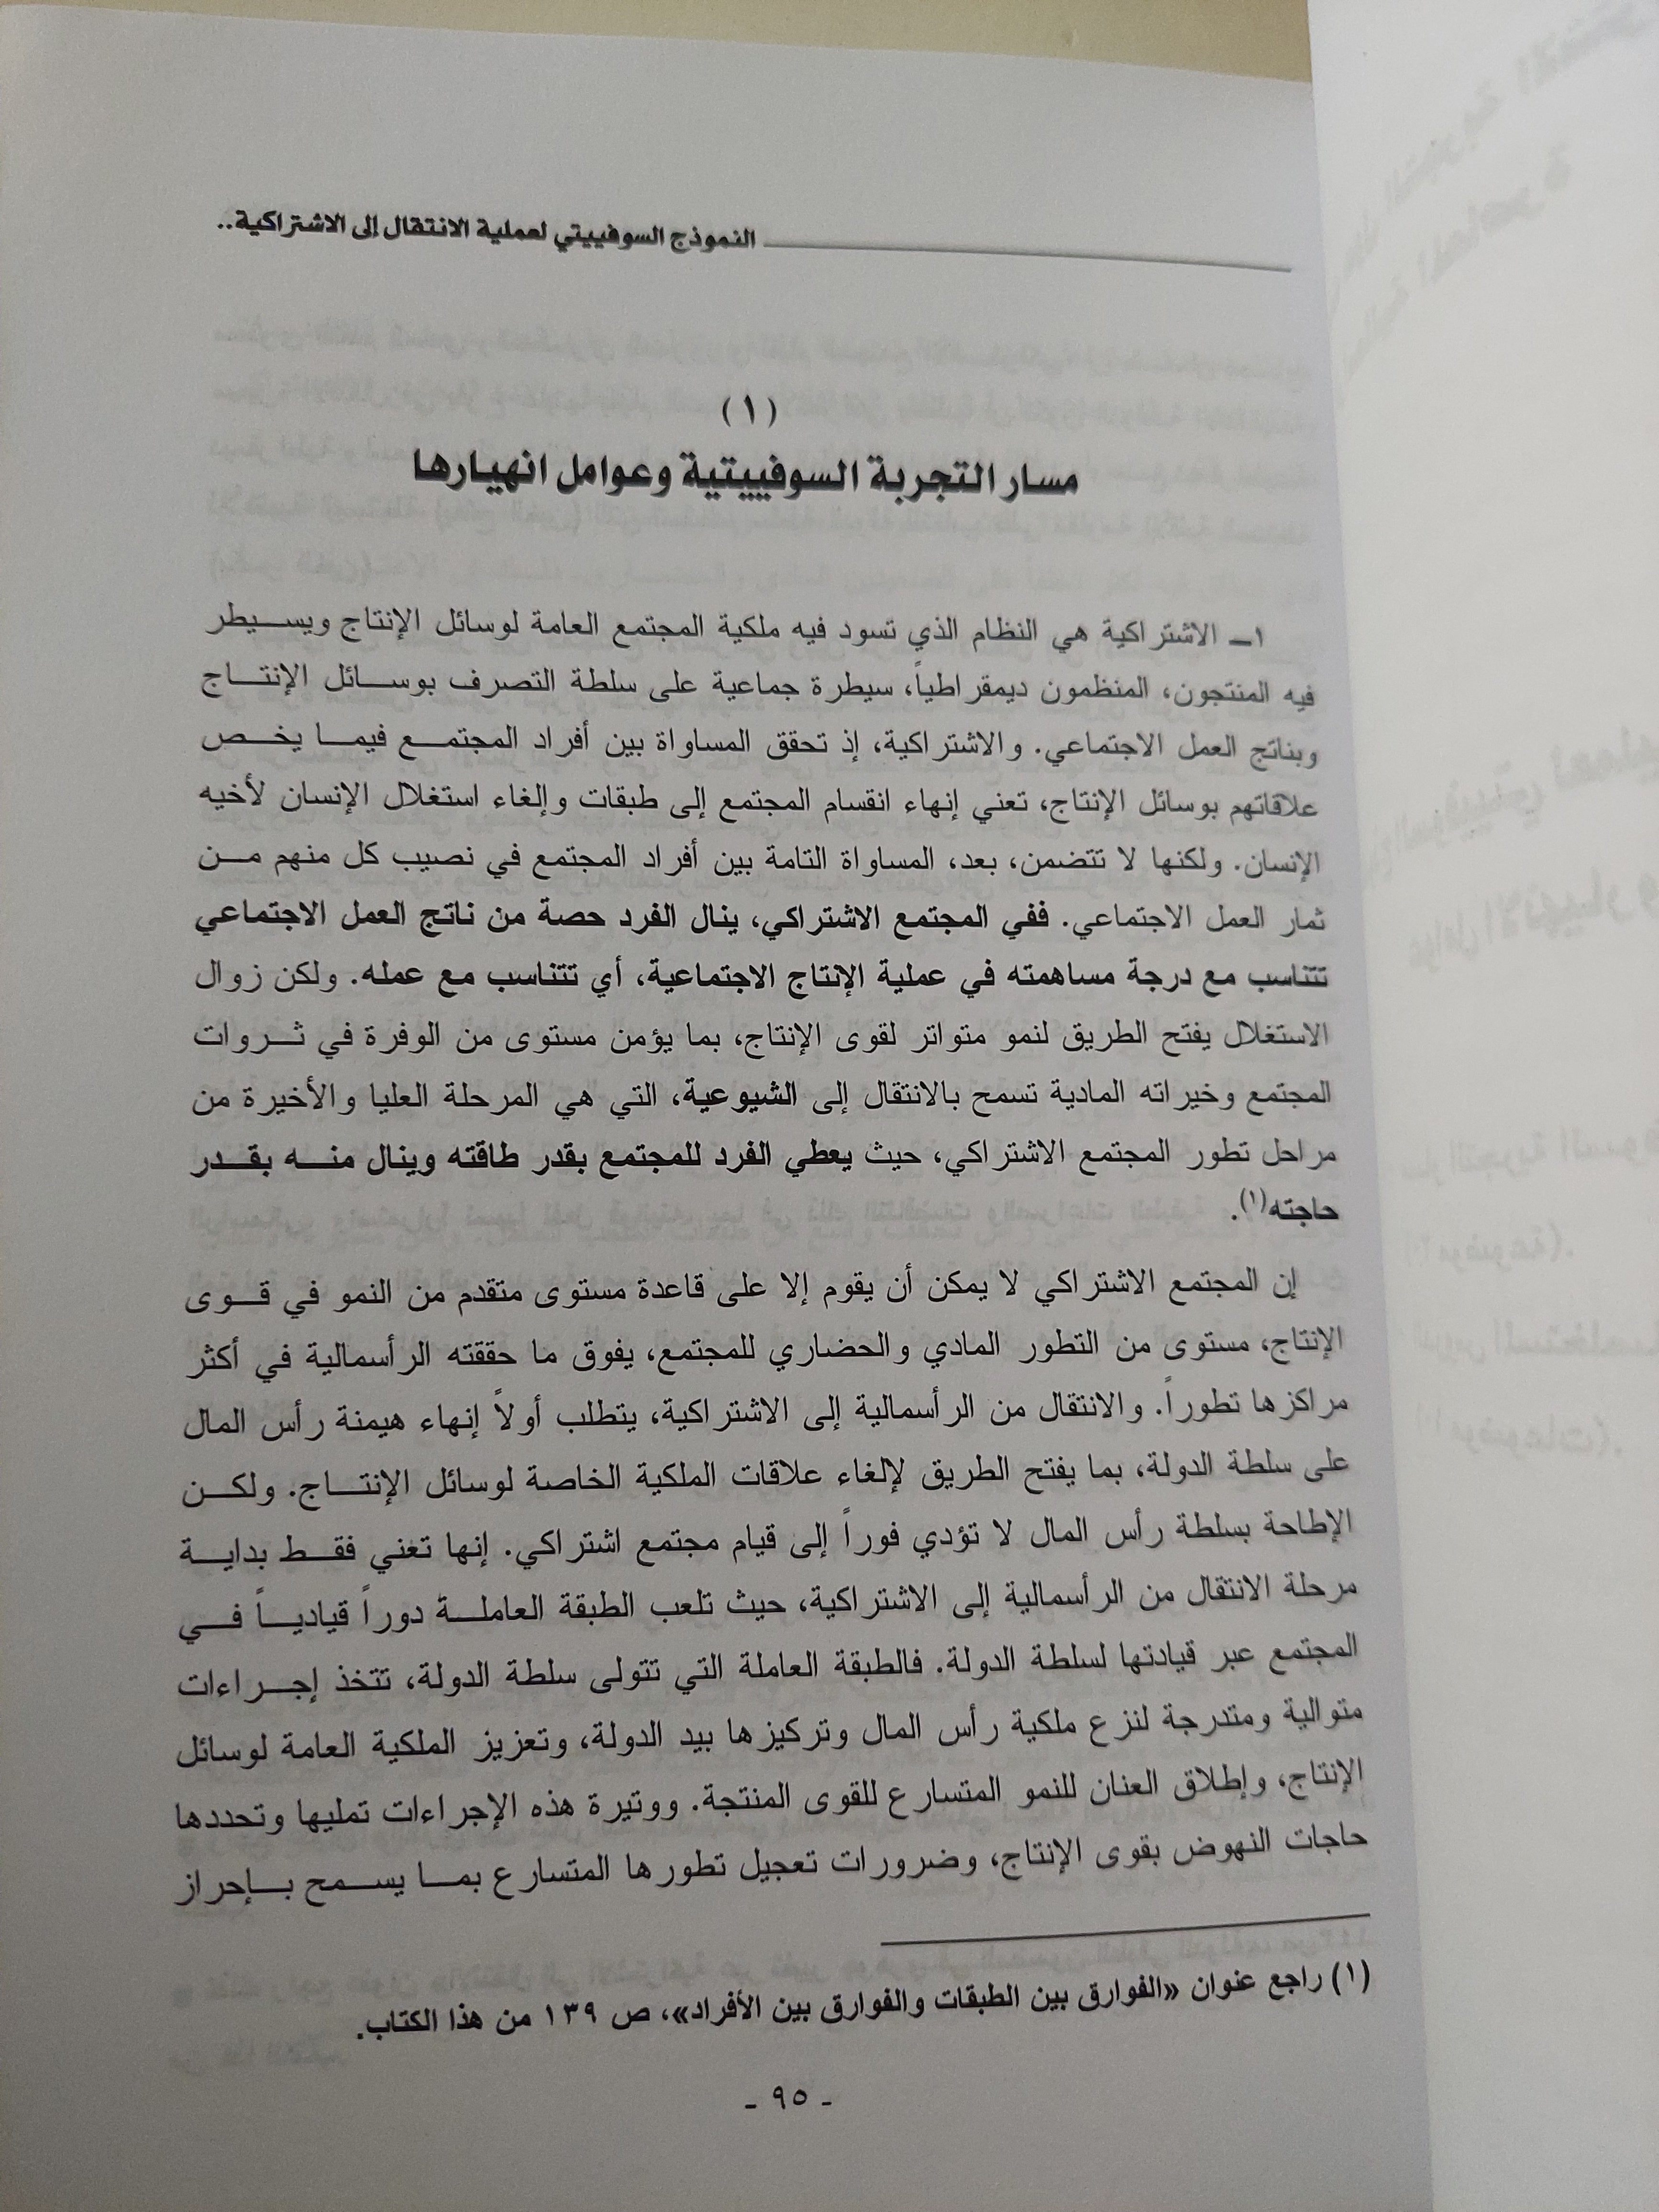 النموذج السوفييتي لعملية الانتقال إلى الاشتراكية..
(١)
مسار التجربة السوفييتية وعوامل انهيارها
١ـ الاشتراكية هي النظام الذي تسود فيه ملكية المجتمع العامة لوسائل الإنتاج ويسـيطر
فيه المنتجون، المنظمون ديمقراطياً، سيطرة جماعية على سلطة التصرف بوسـائل الإنتـاج
وبناتج العمل الاجتماعي. والاشتراكية، إذ تحقق المساواة بين أفراد المجتمـع فيمـا يخـص
علاقاتهم بوسائل الإنتاج، تعني إنهاء انقسام المجتمع إلى طبقات وإلغاء استغلال الإنسان لأخيه
الإنسان. ولكنها لا تتضمن، بعد، المساواة التامة بين أفراد المجتمع في نصيب كل منهم مـن
ثمار العمل الاجتماعي. ففي المجتمع الاشتراكي، ينال الفرد حصة من ناتج العمل الاجتماعي
تتناسب مع درجة مساهمته في عملية الإنتاج الاجتماعية، أي تتناسب مع عمله. ولكن زوال
الاستغلال يفتح الطريق لنمو متواتر لقوى الإنتاج، بما يؤمن مستوى من الوفرة في ثـروات
المجتمع وخيراته المادية تسمح بالانتقال إلى الشيوعية، التي هي المرحلة العليا والأخيرة من
مراحل تطور المجتمع الاشتراكي، حيث يعطي الفرد للمجتمع بقدر طاقته وينال منـه بقـدر
حاجته(١).
إن المجتمع الاشتراكي لا يمكن أن يقوم إلا على قاعدة مستوى متقدم من النمو في قـوى
الإنتاج، مستوى من التطور المادي والحضاري للمجتمع، يفوق ما حققته الرأسمالية في أكثر
مراكزها تطوراً. والانتقال من الرأسمالية إلى الاشتراكية، يتطلب أولاً إنهاء هيمنة رأس المال
على سلطة الدولة، بما يفتح الطريق لإلغاء علاقات الملكية الخاصة لوسائل الإنتـاج. ولكـن
الإطاحة بسلطة رأس المال لا تؤدي فوراً إلى قيام مجتمع اشتراكي. إنها تعني فقـط بدايـة
مرحلة الانتقال من الرأسمالية إلى الاشتراكية، حيث تلعب الطبقة العاملـة دوراً قياديـاً فـي
المجتمع عبر قيادتها لسلطة الدولة. فالطبقة العاملة التي تتولى سلطة الدولة، تتخذ إجـراءات
متوالية ومتدرجة لنزع ملكية رأس المال وتركيزها بيد الدولة، وتعزيز الملكية العامة لوسائل
الإنتاج، وإطلاق العنان للنمو المتسارع للقوى المنتجة. ووتيرة هذه الإجراءات تمليها وتحددها
حاجات النهوض بقوى الإنتاج، وضرورات تعجيل تطورها المتسارع بمـا يسـمح بـإحراز
(١) راجع عنوان «الفوارق بين الطبقات والفوارق بين الأفراد»، ص ١٣٩ من هذا الكتاب.
- ٩٥ -